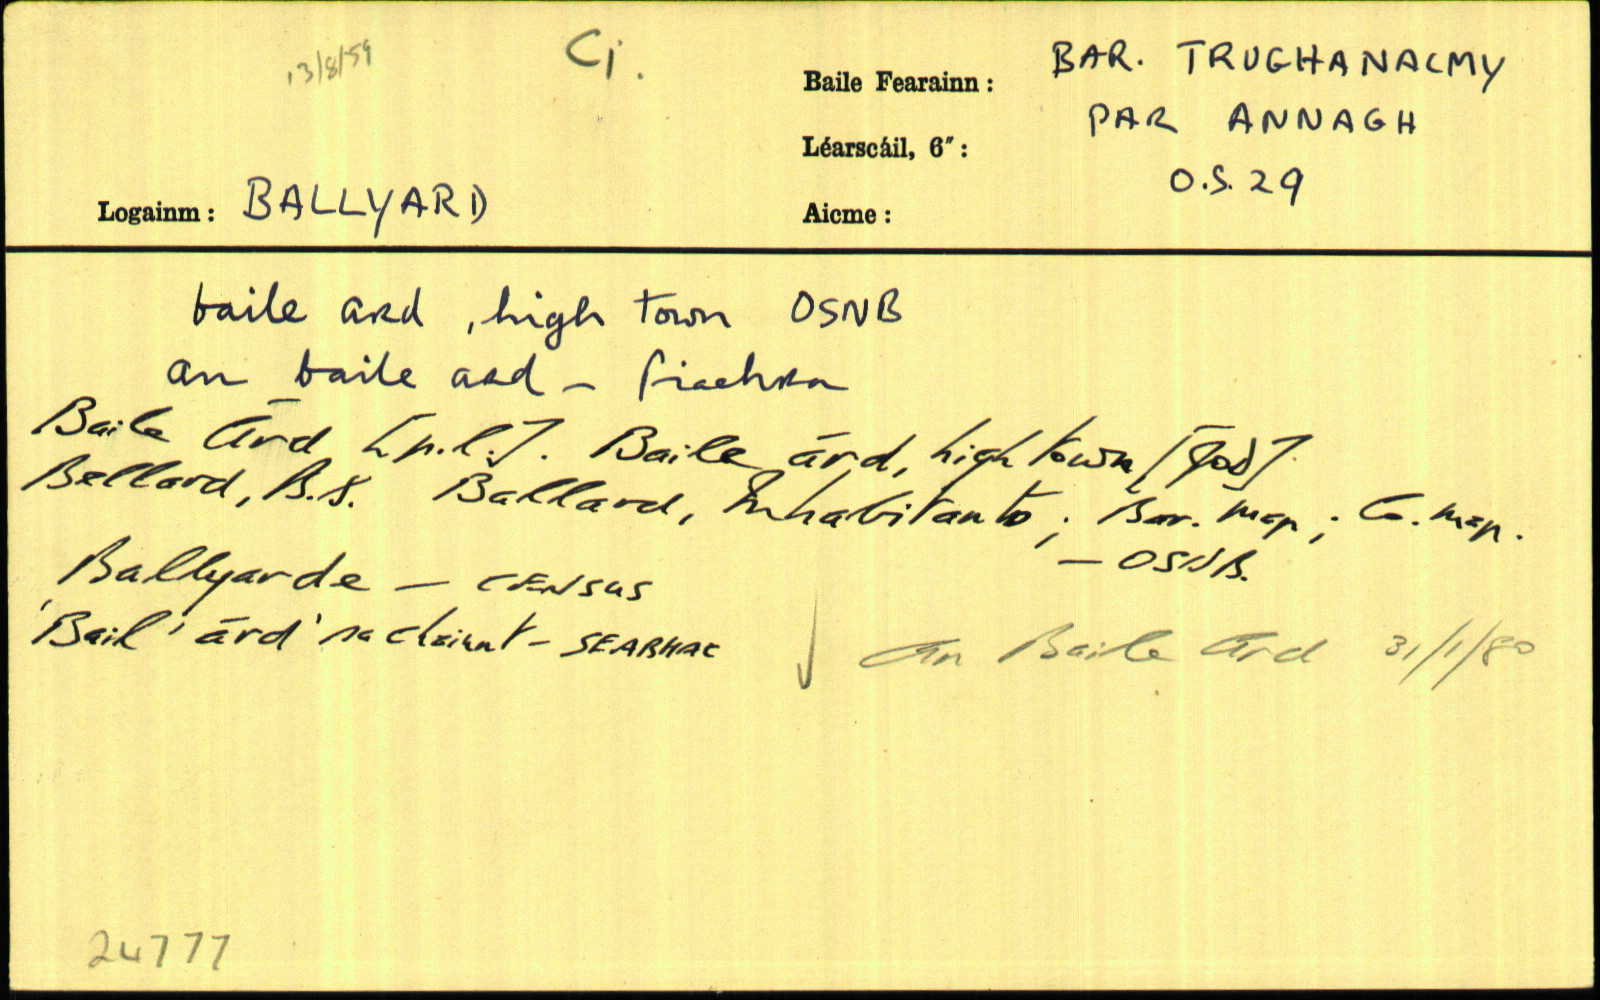 13/8/59
Cj.
Baile Fearainn : BAR. TRUGHANACMY
PAR ANNAGH
Léarscáil, 6″ :
O.S. 29
Logainm : BALLYARD
Aicme :
baile ard, high town OSNB
an baile ard – fiachra
Baile Árd [p.l.]. Baile árd, high town [JOD].
Bellard, B.S. Ballard, Inhabitants; Bar. map; Co. map.
— OSNB.
Ballyarde — CENSUS
'Bail' árd' sa chaint – SEABHAC
An Baile Ard 31/1/80
24777